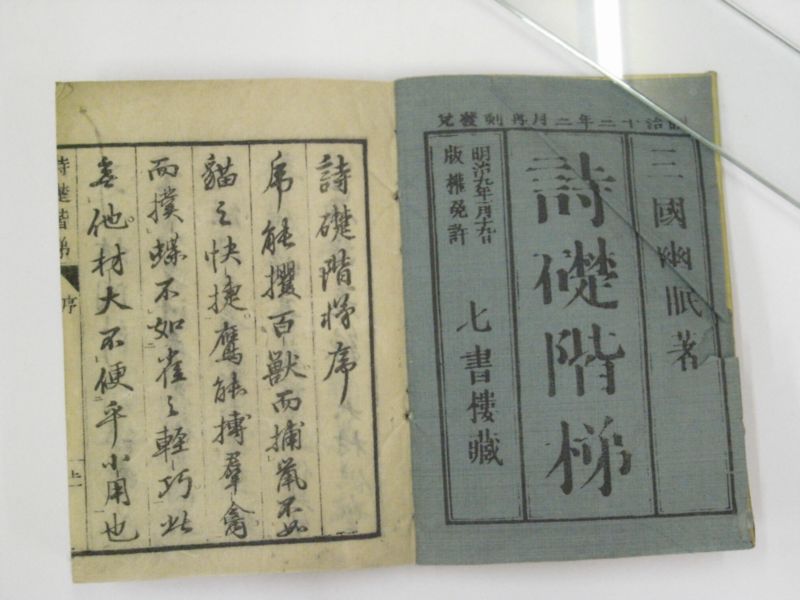 明治十二年二月再刻發兌
三國幽眠著
詩礎階梯
明治九年一月十九日
版權免許
七書樓藏
詩礎階梯序
虎能攫百獸而捕鼠不如
貓之快捷鷹能搏羣禽
而撲蝶不如雀之輕巧此
無他材大不便乎小用也
詩礎階梯 序 上一